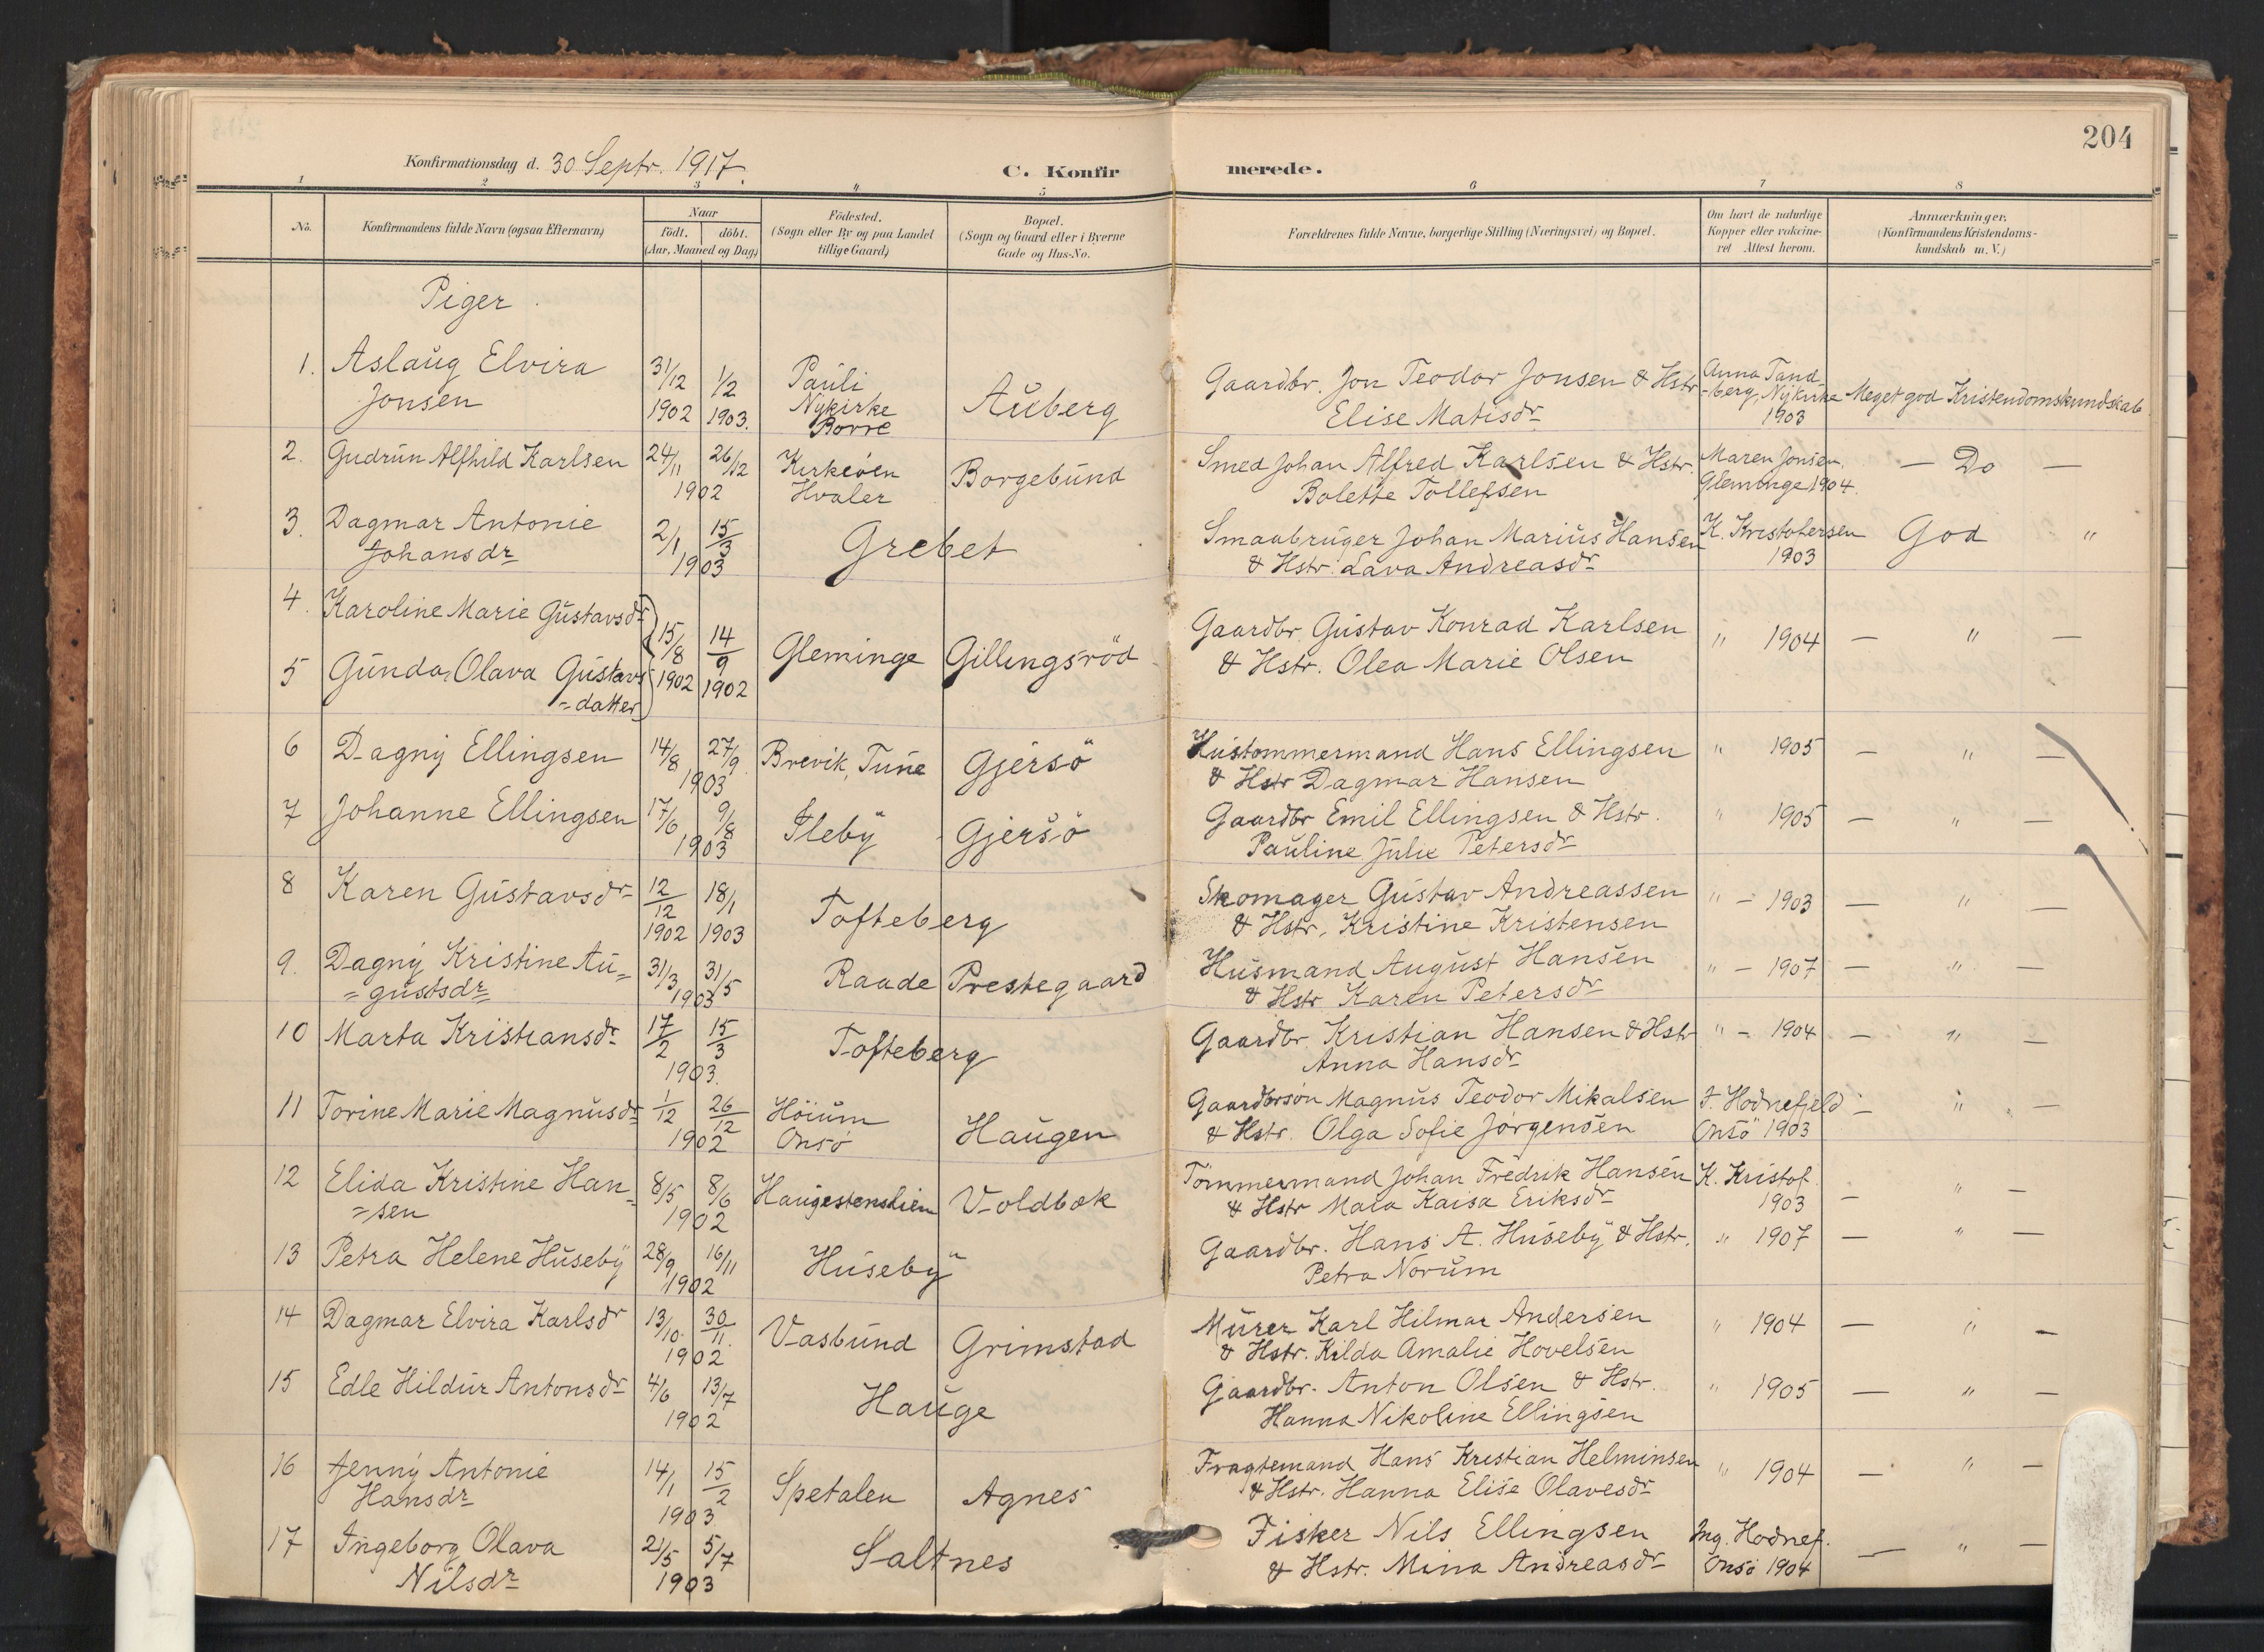 204
Konfirmationsdag d. 30 Septr. 1917.
C. Konfirmerede.
1 2 3 4 5 6 7 8
No.
Konfirmandens fulde Navn (ogsaa Efternavn)
Naar
födt. döbt.
(Aar, Maaned og Dag)
Födested.
(Sogn eller By og paa Landet
tillige Gaard)
Bopæl.
(Sogn og Gaard eller i Byerne
Gade og Hus-No.
Forældrenes fulde Navne, borgerlige Stilling (Næringsvei) og Bopæl.
Om havt de naturlige
Kopper eller vakcine-
ret Attest herom.
Anmærkninger.
(Konfirmandens Kristendoms-
kundskab m. V.)
Piger.
1. Aslaug Elvira 31/12 1/2 Pauli Gaardbr. Jon Teodor Jonsen & Hstr Anna Tand
Jonsen 1902 1903. Nykirke Auberg Elise Matisdr -berg, Nykirke Meget god Kristendomskundskab
Borre 1903
2. Gudrun Alfhild Karlsen 24/11 26/12 Kirkeöen Borgebund Smed Johan Alfred Karlsen & Hstr. Maren Jonsen, — Do —
1902 Hvaler Bolette Tollefsen Glemminge 1904.
3. Dagmar Antonie 2/1 15/3 Grebet Smaabruger Johan Marius Hansen K. Kristofersen God "
Johansdr 1903 & Hstr. Lava Andreasdr 1903
4. Karoline Marie Gustavsdr 15/8 14/9 Gleminge Gillingsröd Gaardbr. Gustav Konrad Karlsen " 1904 — " —
5 Gunda Olava Gustavs 1902 1902 & Hstr. Olea Marie Olsen
=datter
6 Dagny Ellingsen 14/8 27/9 Brevik, Tune Gjersö Hustømmermand Hans Ellingsen " 1905 — " —
1903 & Hstr Dagmar Hansen
7 Johanne Ellingsen 17/6 9/8 Sleby Gjersö Gaardbr Emil Ellingsen & Hstr. " 1905 — " —
1903 Pauline Julie Petersdr
8 Karen Gustavsdr 12/12 18/1 Tofteberg Skomager Gustav Andreassen " - 1903 — " —
1902 1903 & Hstr. Kristine Kristensen
9. Dagny Kristine Au= 31/3 31/5 Raade Prestegaard Husmand August Hansen " - 1907 — " —
=gustsdr 1903 & Hstr. Karen Petersdr
10 Marta Kristiansdr 17/2 15/3 Tofteberg Gaardbr. Kristian Hansen & Hstr " - 1904 — " —
1903. Anna Hansdr
11 Torine Marie Magnusdr 1/12 26/12 Höium Haugen Gaardbrsön Magnus Teodor Mikalsen J. Hodnefjeld — " —
1902 Onsö & Hstr. Olga Sofie Jörgensen Onsö 1903
12 Elida Kristine Han= 8/5 8/6 Haugestenslien Voldbæk Tömmermand Johan Fredrik Hansen K. Kristof.
=sen 1902 & Hstr Mala Kaisa Eriksdr 1903 — " —
13 Petra Helene Huseby 28/9 16/11 Huseby Gaardbr. Hans A. Huseby & Hstr. " 1907 — " —
1902 Petra Norum
14 Dagmar Elvira Karlsdr 13/10. 30/11. Vasbund Grimstad Murer Karl Hilmar Andersen " 1904 — " —
1902 & Hstr. Kilda Amalie Hovelsen
15 Edle Hildur Antonsdr 4/6 13/7 Hauge Gaardbr. Anton Olsen & Hstr. " 1905 — " —
1902 Hanna Nikoline Ellingsen
16 Jenny Antonie 14/1 15/2 Spetalen Agnes Fragtemand Hans Kristian Helminsen " 1904 — " —
Hansdr 1903 & Hstr. Hanna Elise Olavesdr
17 Ingeborg Olava 21/5 5/7 Saltnes Fisker Nils Ellingsen Ing. Hodnef. — " —
Nilsdr 1903 & Hstr. Mina Andreasdr Onsö 1904